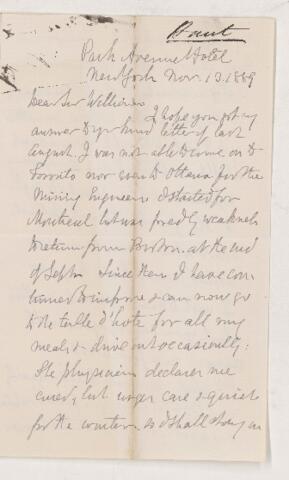 Hunt
Park Avenue Hotel
New York Nov. 13. 1889
Dear Sir William
I hope you got my
answer to yr kind letter of last
August. I was not able to come on to
Toronto nor even to Ottawa for the
Mining Engineers. I started for
Montreal but was forced by weakness
to return from Boston. at the end
of Septr. Since then I have con
tinued to improve & can now go
to the table d'hote for all my
meals & drive out occasionally:
The physician declares me
cured, but urges care & quiet
for the winter. so I shall stay in